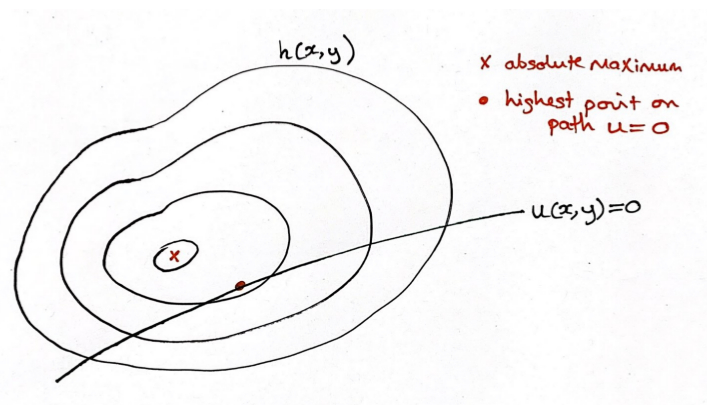 h(x,y)
x absolute maximum
• highest point on
path u=0
u(x,y)=0
x